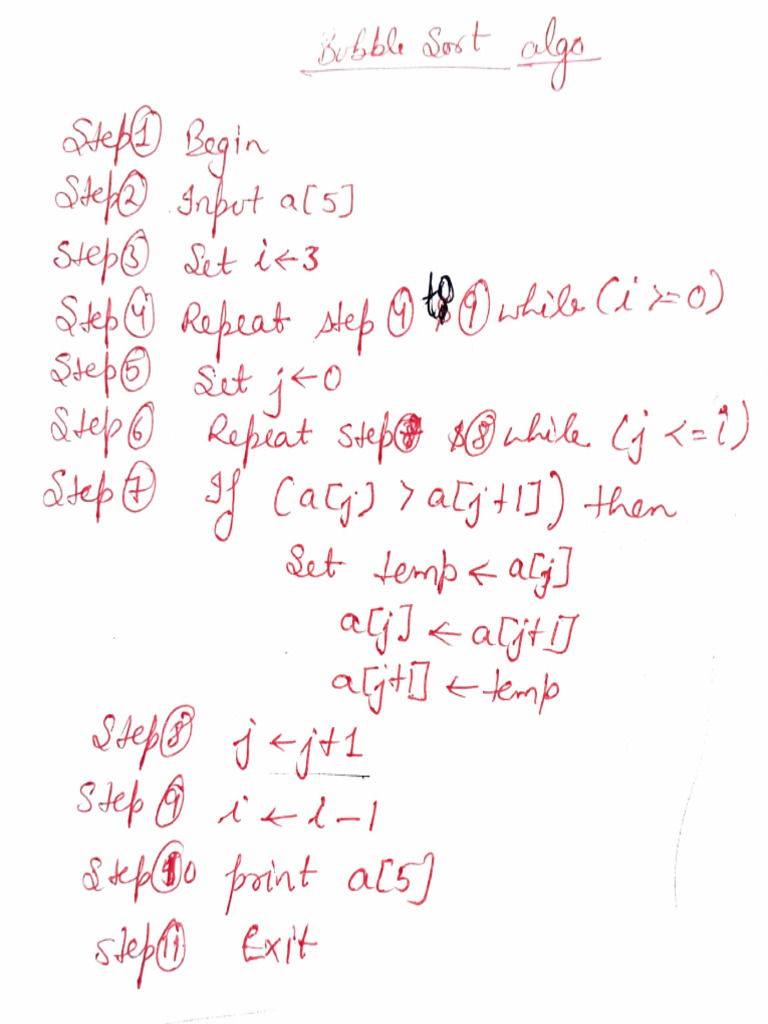 Bubble Sort algo
Step 1 Begin
Step 2 Input a[5]
Step 3 Set i ← 3
Step 4 Repeat step 4 to 9 while (i >= 0)
Step 5 Set j ← 0
Step 6 Repeat step 7 & 8 while (j <= i)
Step 7 If (a[j] > a[j+1]) then
Set temp ← a[j]
a[j] ← a[j+1]
a[j+1] ← temp
Step 8 j ← j+1
Step 9 i ← i-1
Step 10 print a[5]
Step 11 Exit